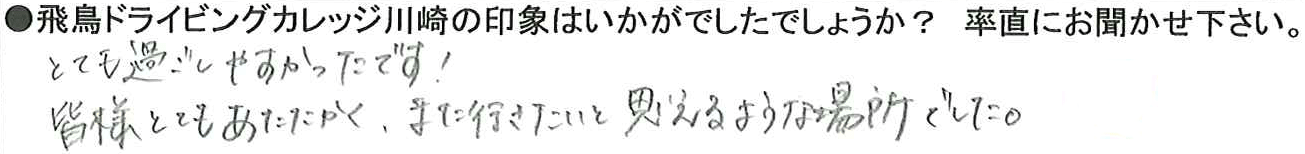 ●飛鳥ドライビングカレッジ川崎の印象はいかがでしたでしょうか？ 率直にお聞かせ下さい。
とても過ごしやすかったです！
皆様とてもあたたかく、また行きたいと思えるような場所でした。